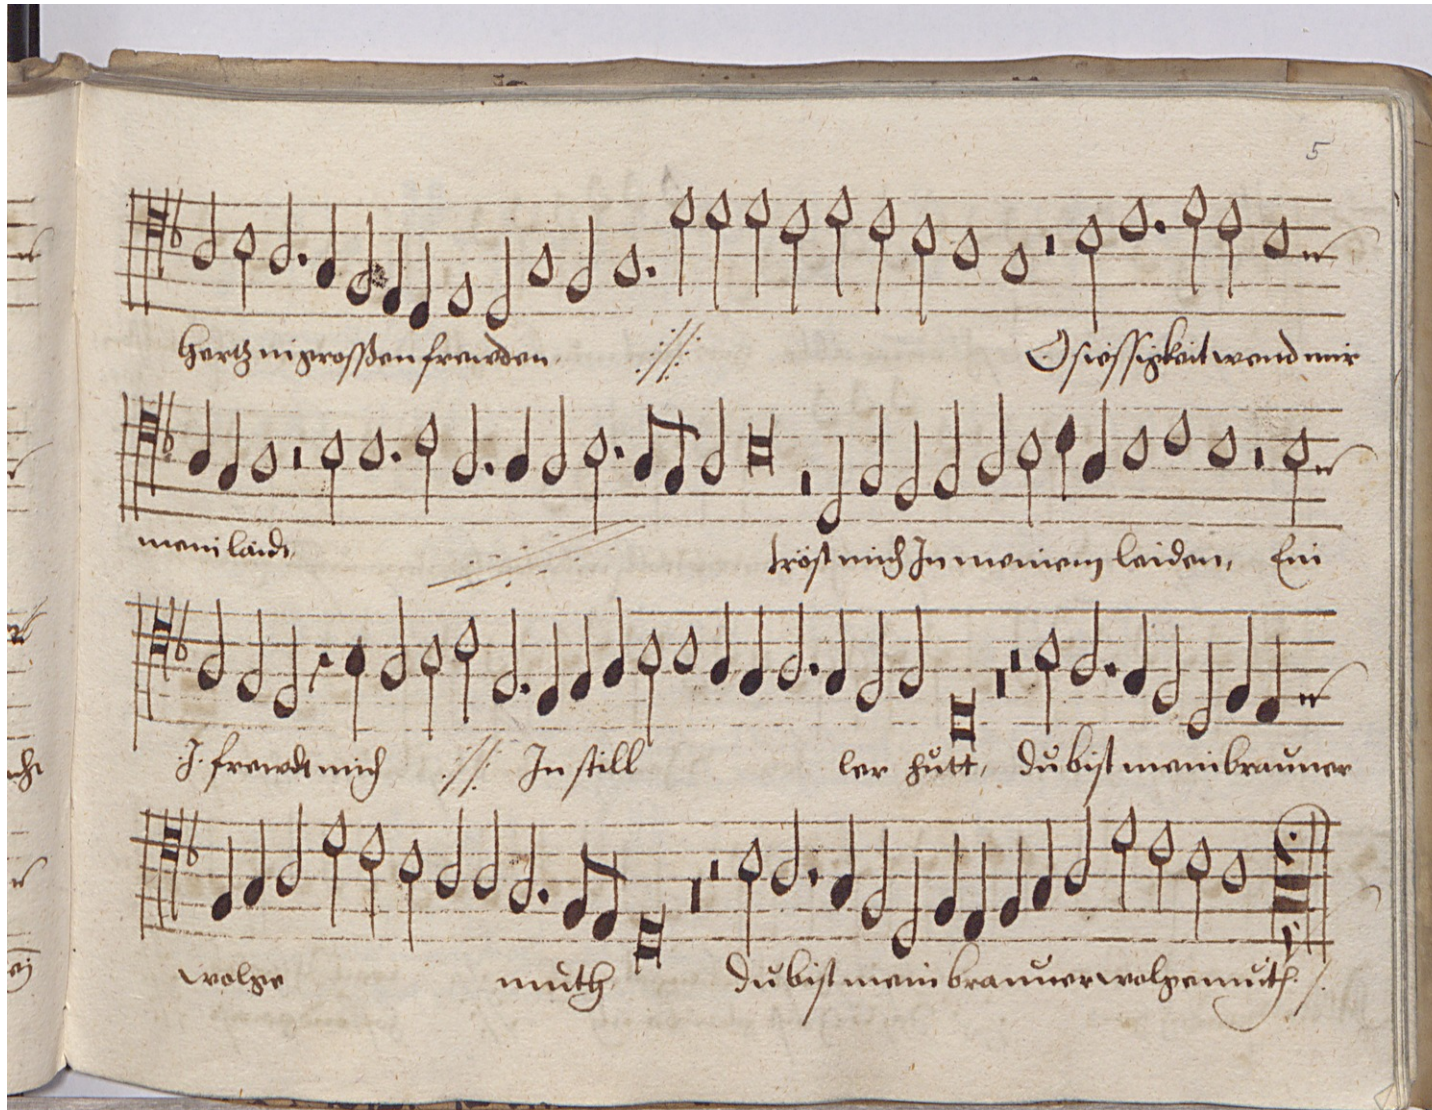 5
hertz in grossen frewden
O siessigkeit wend mir
mein laidt,
tröst mich In meinem leiden, Ein
J. frewdt mich In still ler hütt, dü bist mein brauner
wolge müth
dü bist mein brauner wolgemüth